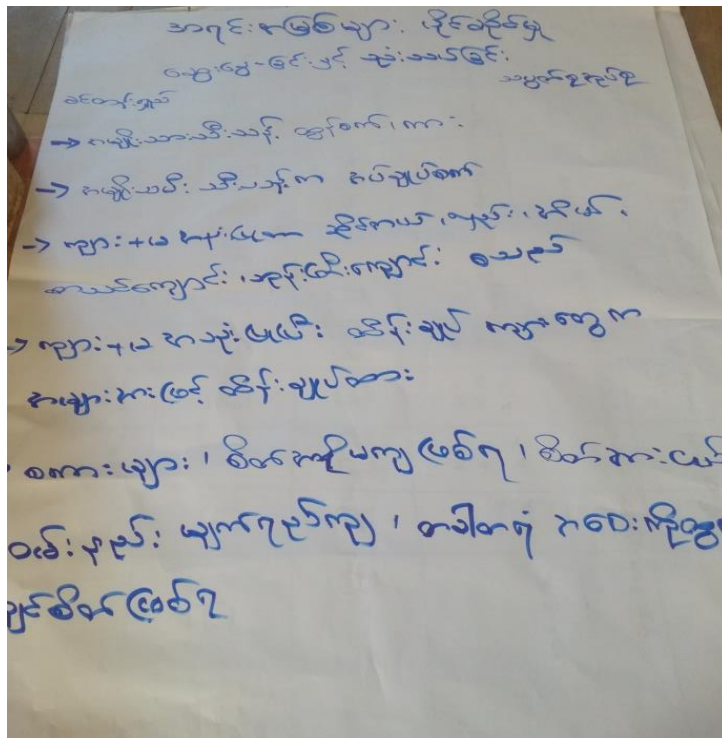 အရင်းအမြစ်များ ပိုင်ဆိုင်မှု
ရွေးချယ်ခြင်းနှင့် သုံးသပ်ခြင်း
သရုပ်ခွဲအုပ်စု
ခင်တန်းရှည်
→ အမျိုးသားသီးသန့် ထွန်စက်၊ ကား
→ အမျိုးသမီး သီးသန့်က အပ်ချုပ်စက်
→ ကျား+မ အသုံးပြုတာ ဆိုင်ကယ်၊ ခြံစည်း၊ အိမ်၊
စာသင်ကျောင်း၊ ဘုန်းကြီးကျောင်း စသည်
→ ကျား+မ အသုံးပြုပြီး ထိန်းချုပ် ကျားတွေက
အများအားဖြင့် ထိန်းချုပ်ထား
စကားများ၊ စိတ်အလိုမကျဖြစ်ရ၊ စိတ်အားငယ်
ဝမ်းနည်း မျက်ရည်ကျ၊ တခါတရံ အဝေးကိုထွ
ချင်စိတ်ဖြစ်ရ